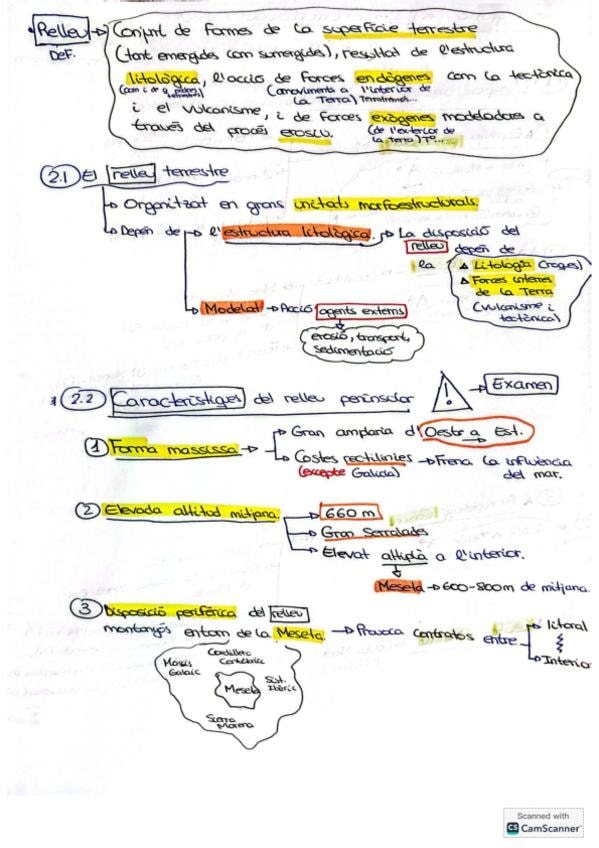 • Relleu → Conjunt de formes de la superfície terrestre
DEF. (tant emergides com sumergides), resultat de l'estructura
litològica, l'acció de forces endògenes com la tectònica
(com i de q. pedres terrestres) (moviments a l'interior de la Terra) Terratremols...
i el vulcanisme, i de forces exògenes modelades a
través del procés erosiu. (de l'exterior de la Terra) Tº...
2.1 El relleu terrestre
Organitzat en grans unitats morfoestructurals.
Depèn de → l'estructura litològica. → La disposició del
relleu depèn de
la ▲ Litologia (roques)
▲ Forces internes
de la Terra
(vulcanisme i
tectònica)
Modelat → Acció agents externs
erosió, transport,
sedimentació
2.2 Característiques del relleu peninsular ! → Examen
1 Forma massissa → Gran amplaria d'Oest a Est.
Costes rectilínies → Frena la influència
(excepte Galícia) del mar.
2 Elevada altitud mitjana. 660 m
Gran Serralades
Elevat altiplà a l'interior.
Meseta → 600-800m de mitjana.
3 Disposició perifèrica del relleu
montanyós entorn de la Meseta. → Provoca contrastos entre litoral
Interior
Cordillera
Cantàbrica
Massís
Galaic
Meseta
Sist.
Ibèric
Sierra
Morena
Scanned with
CS CamScanner